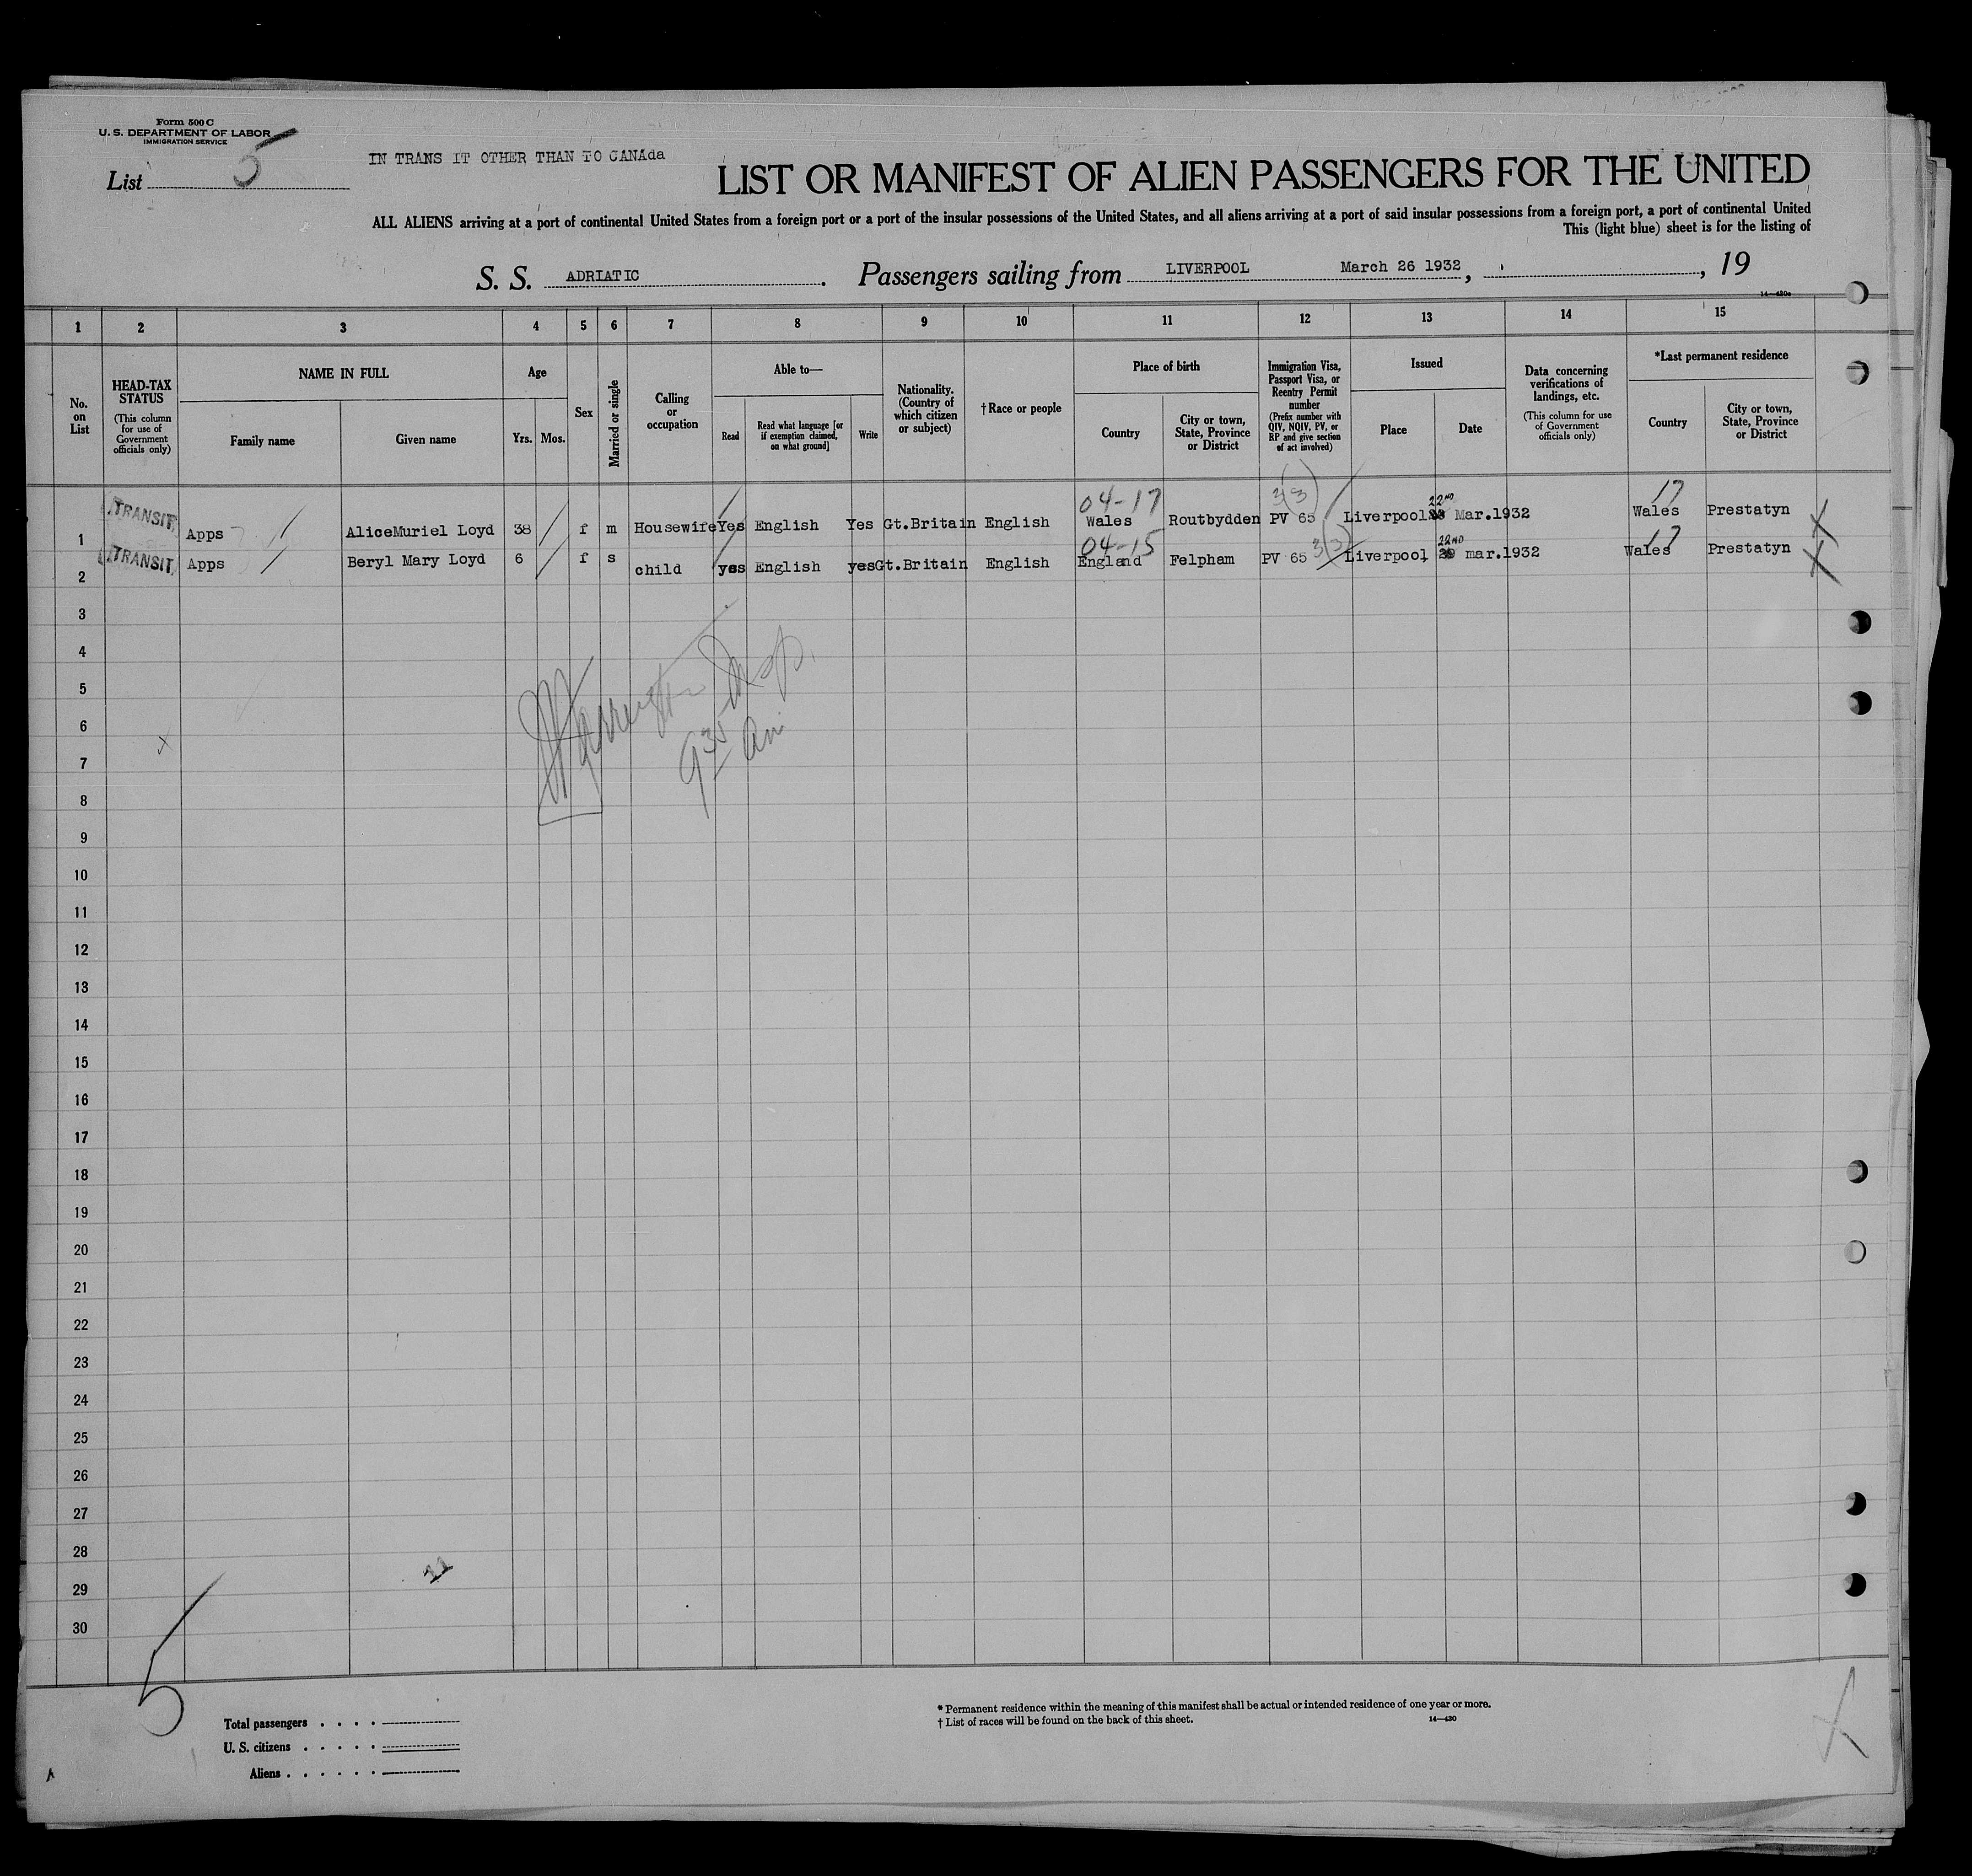 Form 500 C
U. S. DEPARTMENT OF LABOR
IMMIGRATION SERVICE
List 5
IN TRANS IT OTHER THAN TO CANAda
LIST OR MANIFEST OF ALIEN PASSENGERS FOR THE UNITED
ALL ALIENS arriving at a port of continental United States from a foreign port or a port of the insular possessions of the United States, and all aliens arriving at a port of said insular possessions from a foreign port, a port of continental United
This (light blue) sheet is for the listing of
S. S. ADRIATIC. Passengers sailing from LIVERPOOL March 26 1932, , 19
14—430a
1 2 3 4 5 6 7 8 9 10 11 12 13 14 15
No. on List
HEAD-TAX STATUS (This column for use of Government officials only)
NAME IN FULL
Family name
Given name
Age
Yrs.
Mos.
Sex
Married or single
Calling or occupation
Able to—
Read
Read what language [or if exemption claimed, on what ground]
Write
Nationality. (Country of which citizen or subject)
†Race or people
Place of birth
Country
City or town, State, Province or District
Immigration Visa, Passport Visa, or Reentry Permit number (Prefix number with QIV, NQIV, PV, or RP and give section of act involved)
Issued
Place
Date
Data concerning verifications of landings, etc. (This column for use of Government officials only)
*Last permanent residence
Country
City or town, State, Province or District
04-17 3(3) 22ND 17
1 TRANSIT Apps AliceMuriel Loyd 38 f m Housewife Yes English Yes Gt.Britain English Wales Routbydden PV 65 Liverpool Mar.1932 Wales Prestatyn X
04-15 3(3) 22ND 17
2 TRANSIT Apps Beryl Mary Loyd 6 f s child yes English yes Gt.Britain English England Felpham PV 65 Liverpool, mar.1932 Wales Prestatyn X
3
4
5
6
7
8
9
10
11
12
13
14
15
16
17
18
19
20
21
22
23
24
25
26
27
28
29
30
Harrington Insp.
9 35 am
5
Total passengers
U. S. citizens
Aliens
* Permanent residence within the meaning of this manifest shall be actual or intended residence of one year or more.
† List of races will be found on the back of this sheet.
14—430